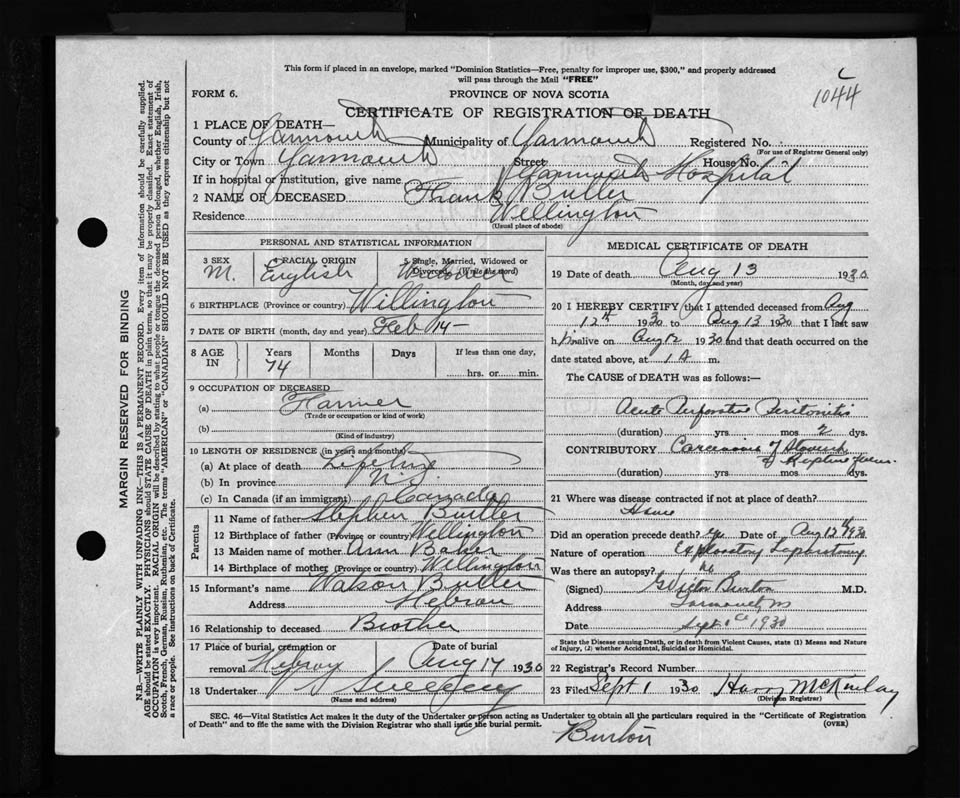 This form if placed in an envelope, marked "Dominion Statistics—Free, penalty for improper use, $300," and properly addressed
will pass through the Mail "FREE"
1044
FORM 6.
PROVINCE OF NOVA SCOTIA
CERTIFICATE OF REGISTRATION OF DEATH
1 PLACE OF DEATH—
County of Yarmouth Municipality of Yarmouth Registered No.
(For use of Registrar General only)
City or Town Yarmouth Street House No.
If in hospital or institution, give name Yarmouth Hospital
2 NAME OF DECEASED Frank Butler
Residence Wellington
(Usual place of abode)
PERSONAL AND STATISTICAL INFORMATION
3 SEX 4 RACIAL ORIGIN 5 Single, Married, Widowed or Divorced (Write the word)
M. English Widower
6 BIRTHPLACE (Province or country) Willington
7 DATE OF BIRTH (month, day and year) Feb 14—
8 AGE IN Years Months Days If less than one day,
74 hrs. or min.
9 OCCUPATION OF DECEASED
(a) Farmer
(Trade or occupation or kind of work)
(b)
(Kind of industry)
10 LENGTH OF RESIDENCE (in years and months)
(a) At place of death Life time
(b) In province N.S.
(c) In Canada (if an immigrant) Canada
Parents
11 Name of father Stephen Butler
12 Birthplace of father (Province or country) Wellington
13 Maiden name of mother Ann Baker
14 Birthplace of mother (Province or country) Willington
15 Informant's name Watson Butler
Address Hebron
16 Relationship to deceased Brother
17 Place of burial, cremation or removal Hebron Date of burial Aug 14 1930
18 Undertaker Sweeney
(Name and address)
MEDICAL CERTIFICATE OF DEATH
19 Date of death Aug 13 1930
(Month, day and year)
20 I HEREBY CERTIFY that I attended deceased from Aug
12th 1930 to Aug 13 1930 that I last saw
him alive on Aug 12 1930 and that death occurred on the
date stated above, at 1 A m.
The CAUSE OF DEATH was as follows:—
Acute Perforative Peritonitis
(duration) yrs mos 2 dys.
CONTRIBUTORY Carcinoma of Stomach
(duration) yrs mos dys.
21 Where was disease contracted if not at place of death?
Home
Did an operation precede death? yes Date of Aug 12th 1930
Nature of operation Exploratory Laparotomy
Was there an autopsy? no
(Signed) G Victor Burton M.D.
Address Yarmouth NS
Date Sept 1st 1930
State the Disease causing Death, or in death from Violent Causes, state (1) Means and Nature
of Injury, (2) whether Accidental, Suicidal or Homicidal.
22 Registrar's Record Number
23 Filed Sept 1 1930 Harry McKinlay
(Division Registrar)
SEC. 46—Vital Statistics Act makes it the duty of the Undertaker or person acting as Undertaker to obtain all the particulars required in the "Certificate of Registration
of Death" and to file the same with the Division Registrar who shall issue the burial permit.
(OVER)
Burton
MARGIN RESERVED FOR BINDING
N.B.—WRITE PLAINLY WITH UNFADING INK—THIS IS A PERMANENT RECORD. Every item of information should be carefully supplied.
AGE should be stated EXACTLY. PHYSICIANS should STATE CAUSE OF DEATH in plain terms, so that it may be properly classified. Exact statement of
OCCUPATION is very important. RACIAL ORIGIN will be described by stating to what people or tongue the deceased person belonged, whether English, Irish,
Scotch, French, German, Russian, Ruthenian, etc. The terms "AMERICAN" or "CANADIAN" SHOULD NOT BE USED as they express citizenship but not
a race or people. See instructions on back of Certificate.